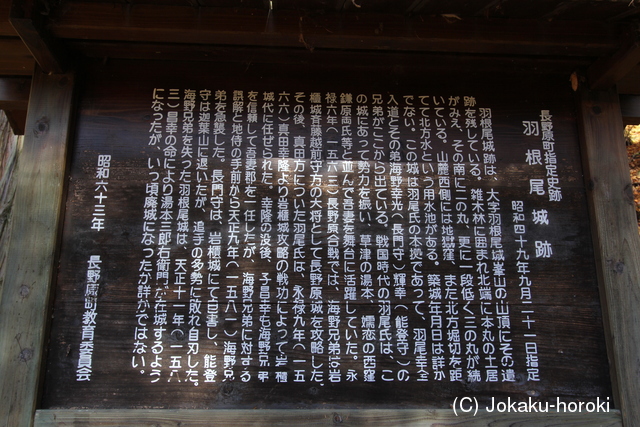 長野原町指定史跡
羽根尾城跡
昭和四十九年九月二十一日指定
羽根尾城跡は、大字羽根尾城峯山の山頂にその遺
跡を残している。雑木林に囲まれ北端に本丸の土居
がみえ、その南に二の丸、更に一段低く三の丸が続
いている。山麓西側には地獄窪、また北方堀切を距
てて北方水という用水池がある。築城年月日は詳か
でない。この城は羽尾氏の本拠であって、羽尾幸全
入道とその弟海野幸光(長門守)輝幸(能登守)の
兄弟がここから出ている。戦国時代の羽尾氏は、こ
の城にあって勢力を振い、草津の湯本、嬬恋の西窪
鎌原両氏等と並んで吾妻を舞台に活躍していた。永
禄六年(一五六三)長野原合戦では、海野兄弟は岩
櫃城斉藤越前守方の大将として長野原城を攻略した。
その後、真田方についた羽尾氏は、永禄九年(一五
六六)真田幸隆より岩櫃城攻略の戦功によって岩櫃
城代に任ぜられた。幸隆の没後、子昌幸も海野兄弟
を信頼して吾妻郡を一任したが、海野兄弟に対する
誤解と地侍の手前から天正九年(一五八一)海野兄
弟を急襲した。長門守は、岩櫃城にて自害し、能登
守は迦葉山に退いたが、追手の多勢に敗れ自刃した。
海野兄弟を失った羽根尾城は、天正十一年(一五八
三)昌幸の命により湯本三郎右衛門が在城するよう
になったが、いつ頃廃城になったか詳かではない。
昭和六十三年
長野原町教育委員会
(C) Jokaku-horoki